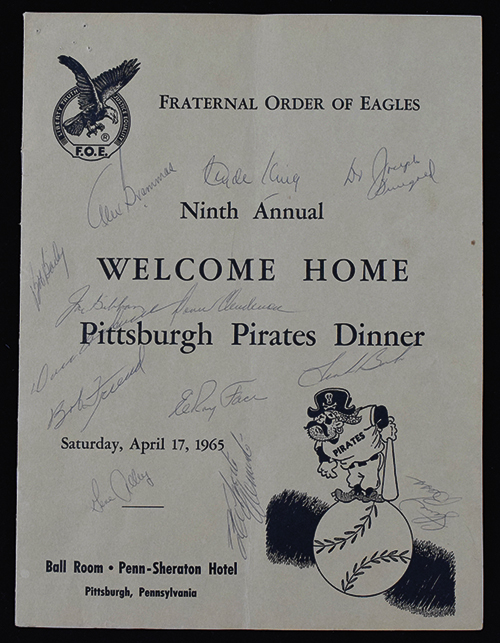 FRATERNAL ORDER OF EAGLES
LIBERTY TRUTH JUSTICE EQUALITY
®
F.O.E.
Alex Grammas
Clyde King
Dr Joseph
Ninth Annual
Bob
WELCOME HOME
Joe Gibbon
Donn Clendenon
Pittsburgh Pirates Dinner
Bob Friend
ElRoy Face
Saturday, April 17, 1965
PIRATES
Gene Alley
Ball Room • Penn-Sheraton Hotel
Pittsburgh, Pennsylvania